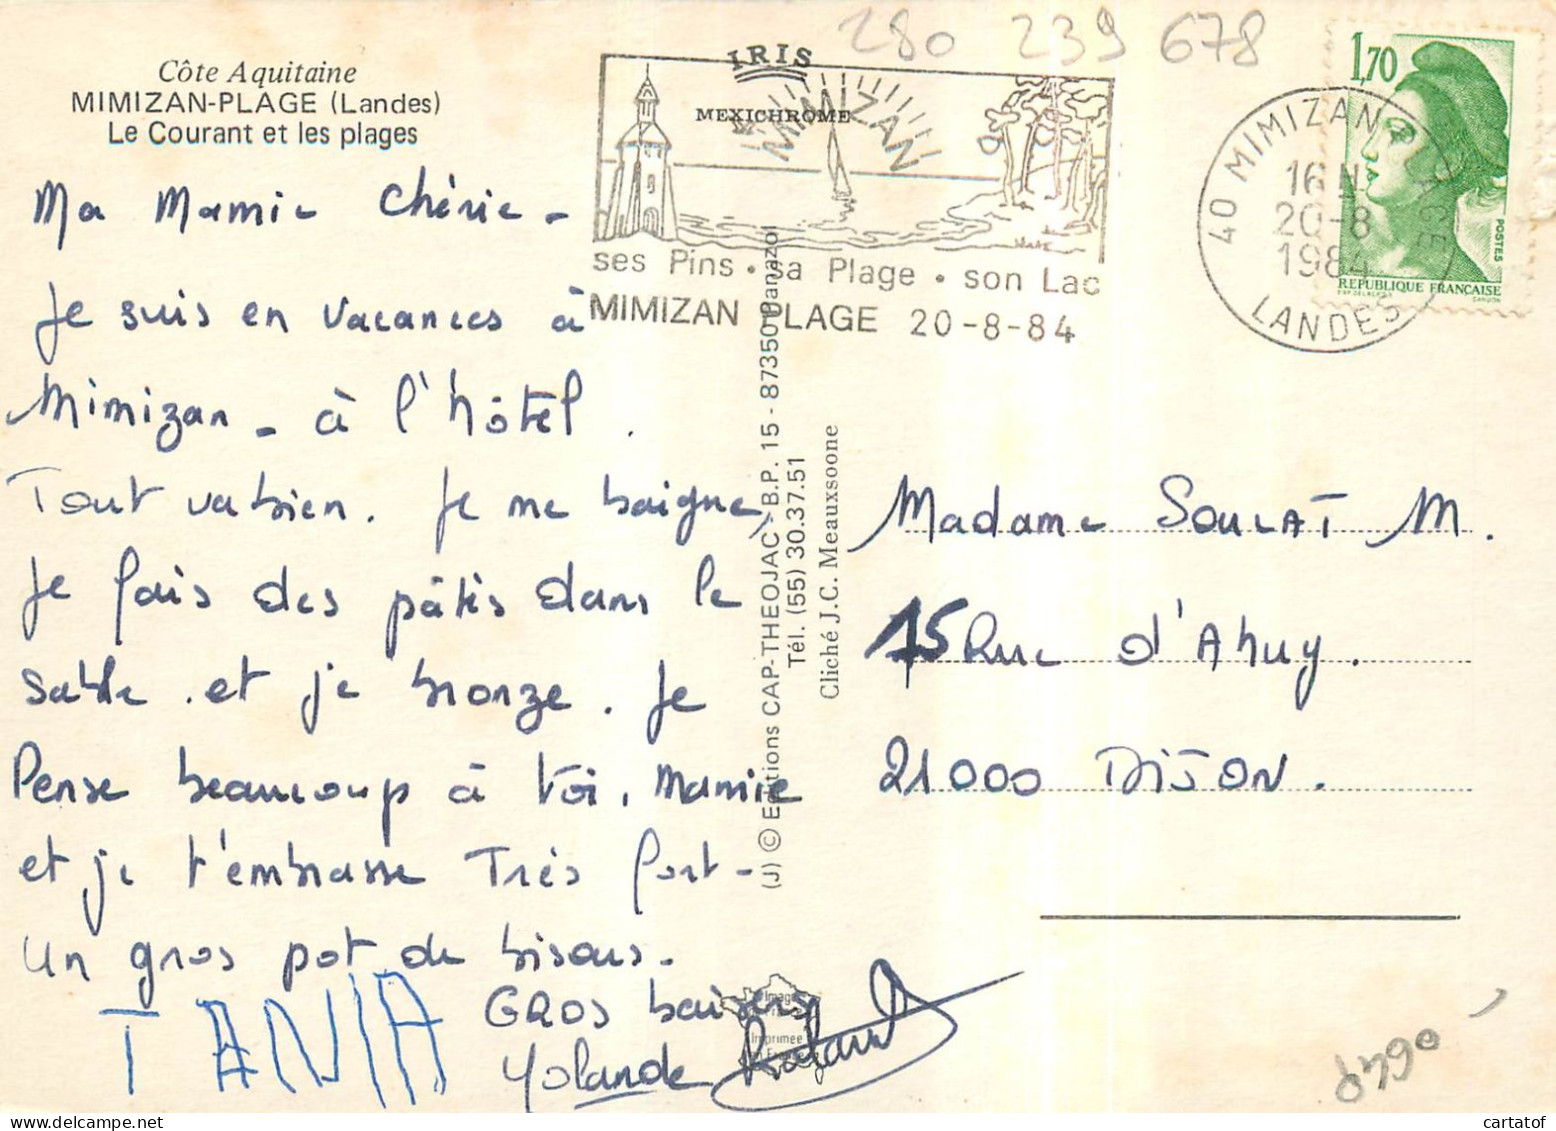 Côte Aquitaine
MIMIZAN-PLAGE (Landes)
Le Courant et les plages
Ma Mamie Chérie -
Je suis en vacances à
Mimizan - à l'hôtel.
Tout va bien. Je me baigne,
je fais des pâtés dans le
sable. et je bronze. Je
Pense beaucoup à toi, Mamie
et je t'embrasse Très fort -
Un gros pot de bisous.
TANIA
GROS baisers
Yolande
IRIS
MEXICHROME
MIMIZAN
ses Pins • sa Plage • son Lac
MIMIZAN PLAGE 20-8-84
280 239 678
1,70
POSTES
REPUBLIQUE FRANÇAISE
40 MIMIZAN PLAGE
16 H
20-8
1984
LANDES
(J) © Editions CAP-THEOJAC - B.P. 15 - 87350 Panazol
Tél. (55) 30.37.51
Cliché J.C. Meauxsoone
Madame SOULAT M.
15 Rue d'Ahuy.
21000 DIJON.
Imprimée
cartatof